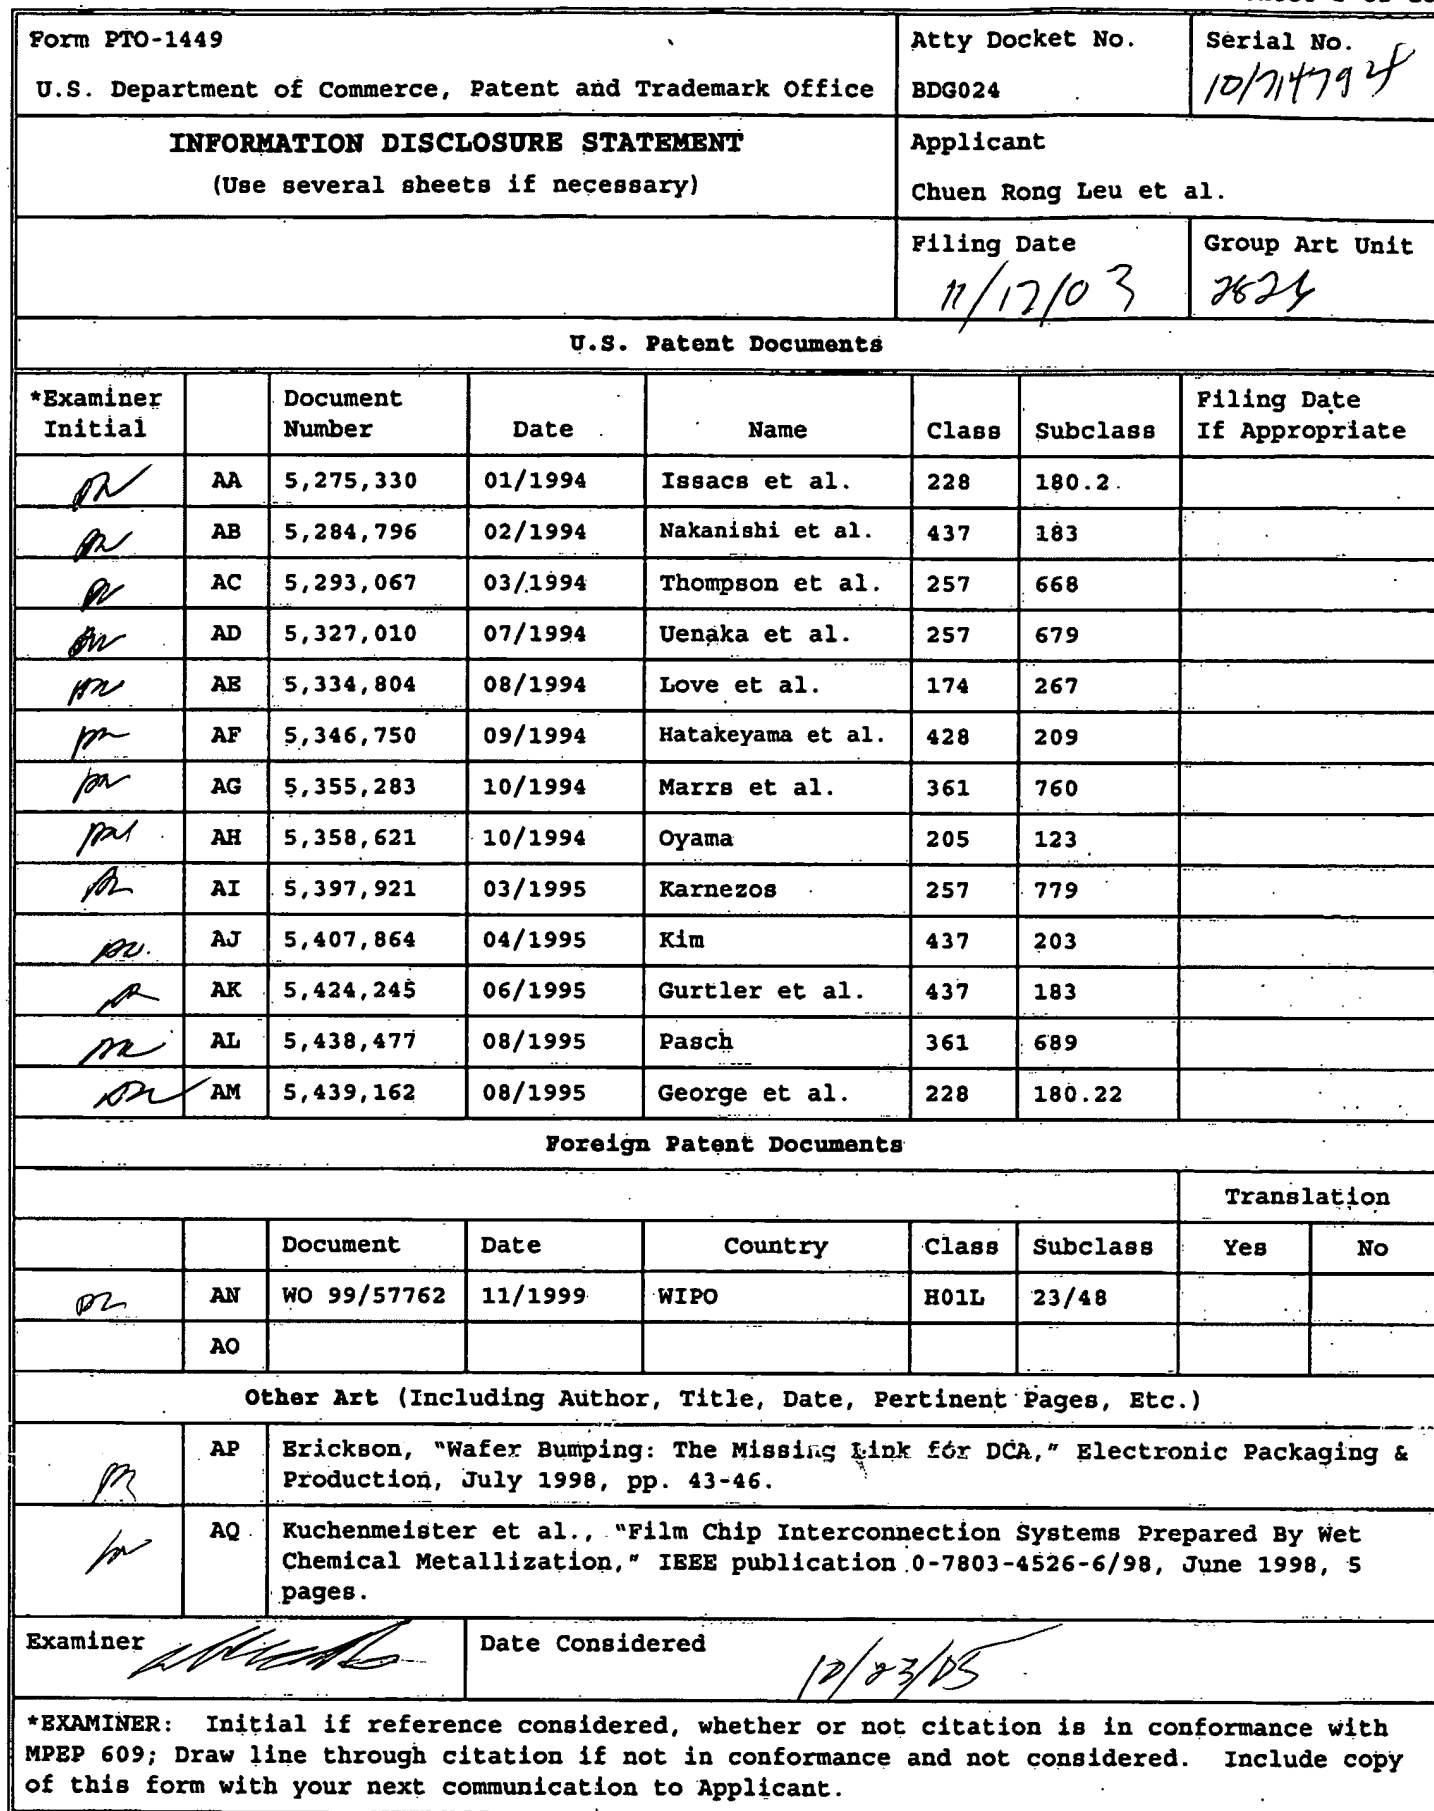 Form PTO-1449
U.S. Department of Commerce, Patent and Trademark Office
Atty Docket No.
BDG024
Serial No.
10/714794
INFORMATION DISCLOSURE STATEMENT
(Use several sheets if necessary)
Applicant
Chuen Rong Leu et al.
Filing Date
11/17/03
Group Art Unit
2826
U.S. Patent Documents
*Examiner Initial Document Number Date Name Class Subclass Filing Date If Appropriate
AA 5,275,330 01/1994 Issacs et al. 228 180.2
AB 5,284,796 02/1994 Nakanishi et al. 437 183
AC 5,293,067 03/1994 Thompson et al. 257 668
AD 5,327,010 07/1994 Uenaka et al. 257 679
AE 5,334,804 08/1994 Love et al. 174 267
AF 5,346,750 09/1994 Hatakeyama et al. 428 209
AG 5,355,283 10/1994 Marrs et al. 361 760
AH 5,358,621 10/1994 Oyama 205 123
AI 5,397,921 03/1995 Karnezos 257 779
AJ 5,407,864 04/1995 Kim 437 203
AK 5,424,245 06/1995 Gurtler et al. 437 183
AL 5,438,477 08/1995 Pasch 361 689
AM 5,439,162 08/1995 George et al. 228 180.22
Foreign Patent Documents
Translation
Document Date Country Class Subclass Yes No
AN WO 99/57762 11/1999 WIPO H01L 23/48
AO
Other Art (Including Author, Title, Date, Pertinent Pages, Etc.)
AP Erickson, "Wafer Bumping: The Missing Link for DCA," Electronic Packaging &
Production, July 1998, pp. 43-46.
AQ Kuchenmeister et al., "Film Chip Interconnection Systems Prepared By Wet
Chemical Metallization," IEEE publication 0-7803-4526-6/98, June 1998, 5
pages.
Examiner
Date Considered
10/23/05
*EXAMINER: Initial if reference considered, whether or not citation is in conformance with
MPEP 609; Draw line through citation if not in conformance and not considered. Include copy
of this form with your next communication to Applicant.